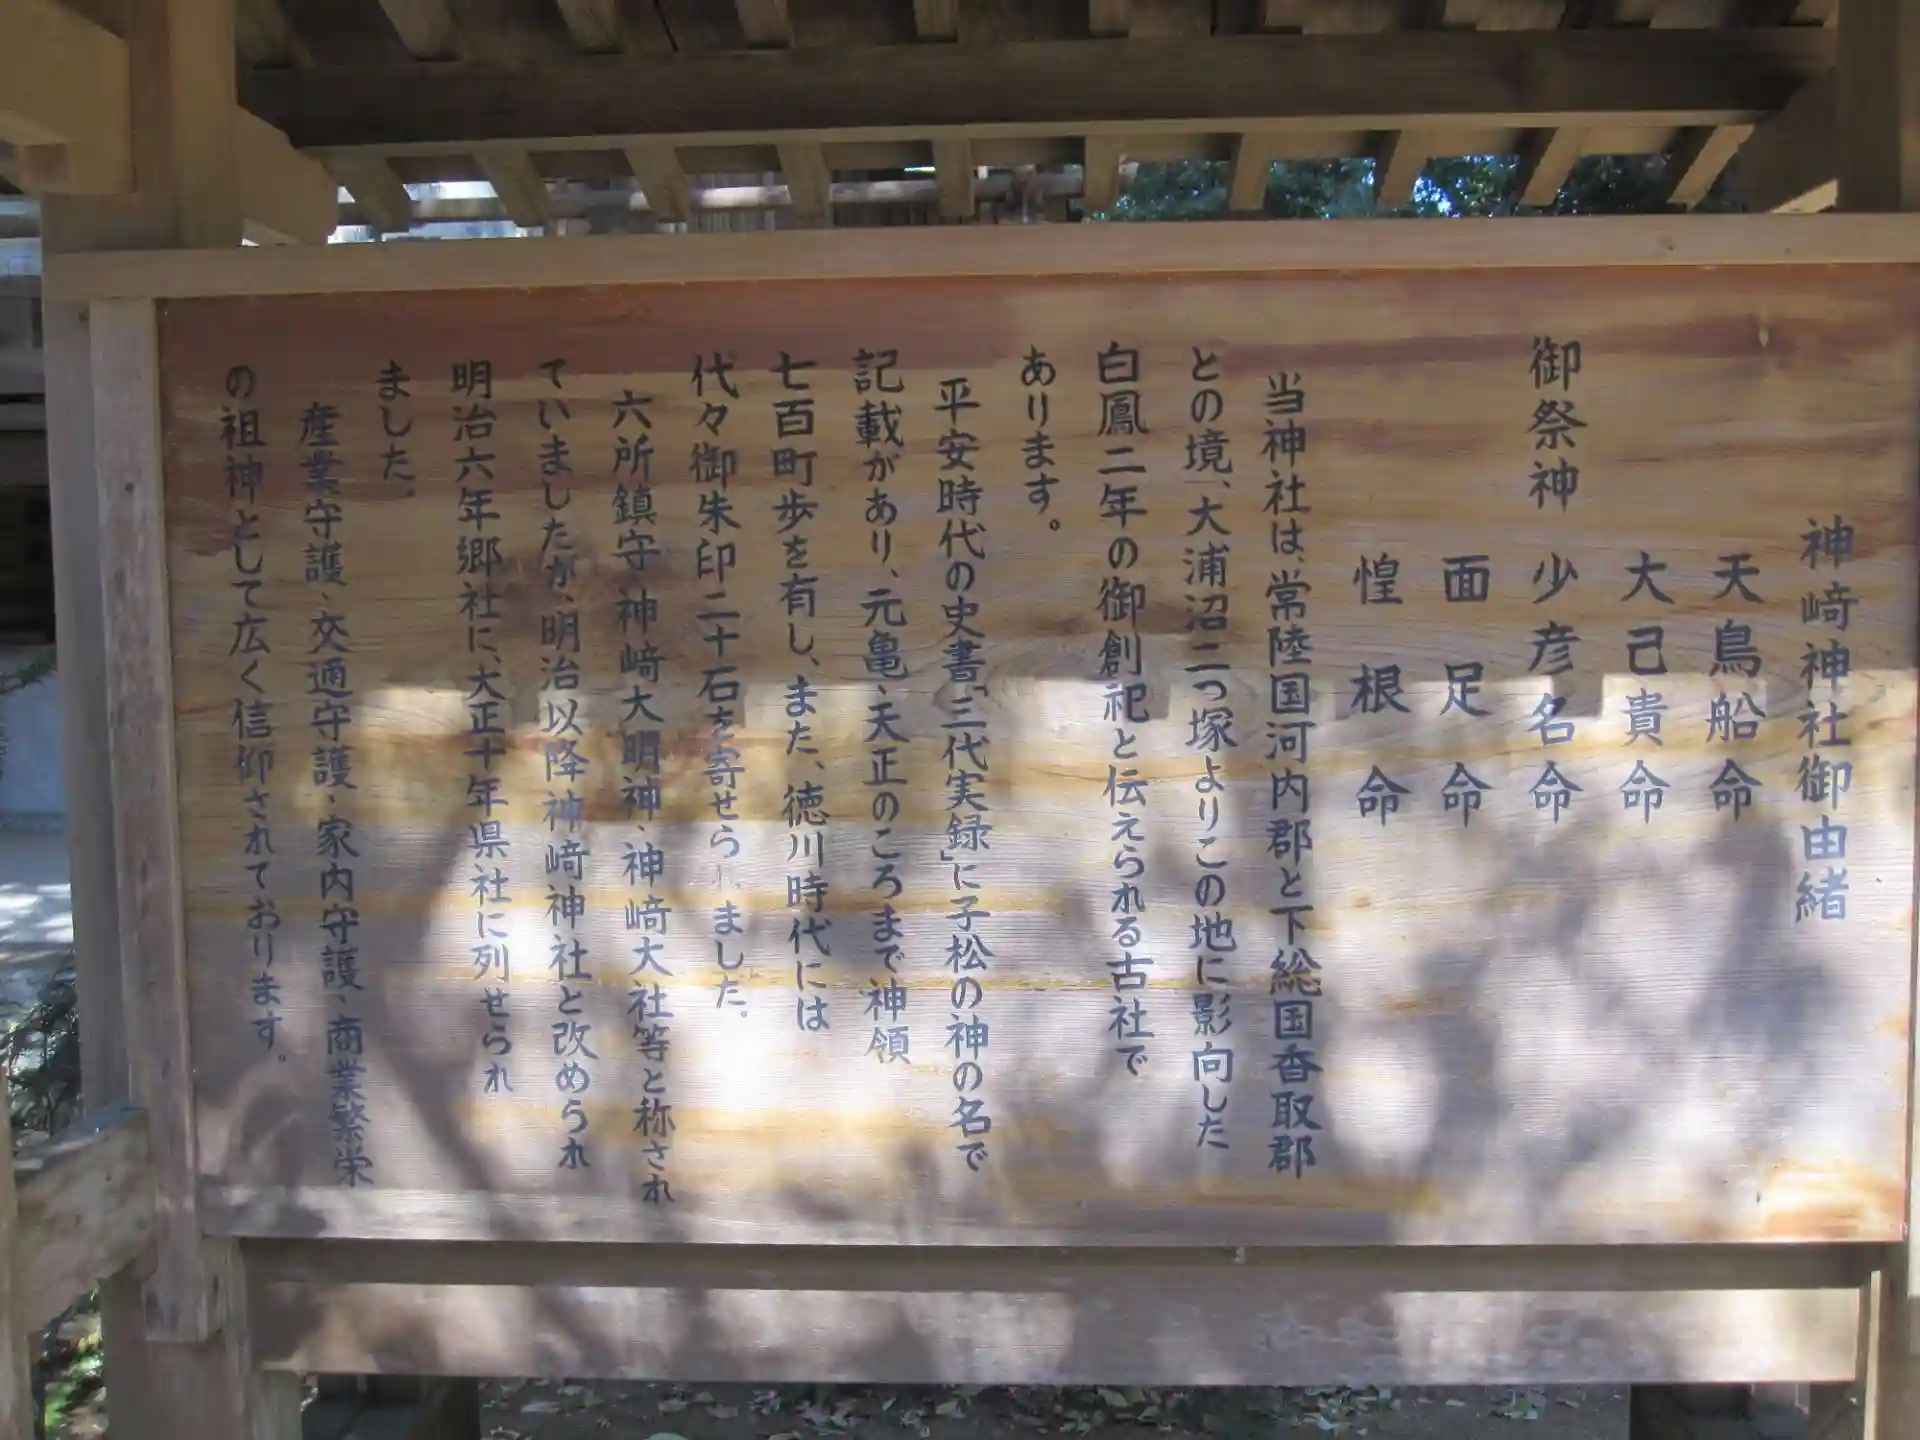 神﨑神社御由緒
天鳥船命
大己貴命
御祭神 少彦名命
面足命
惶根命
当神社は、常陸国河内郡と下総国香取郡
との境、大浦沼二つ塚よりこの地に影向した
白鳳二年の御創祀と伝えられる古社で
あります。
平安時代の史書「三代実録」に子松の神の名で
記載があり、元亀、天正のころまで神領
七百町歩を有し、また、徳川時代には
代々御朱印二十石を寄せられました。
六所鎮守、神﨑大明神、神﨑大社等と称され
ていましたが、明治以降神﨑神社と改められ
明治六年郷社に、大正十年県社に列せられ
ました。
産業守護、交通守護、家内守護、商業繁栄
の祖神として広く信仰されております。